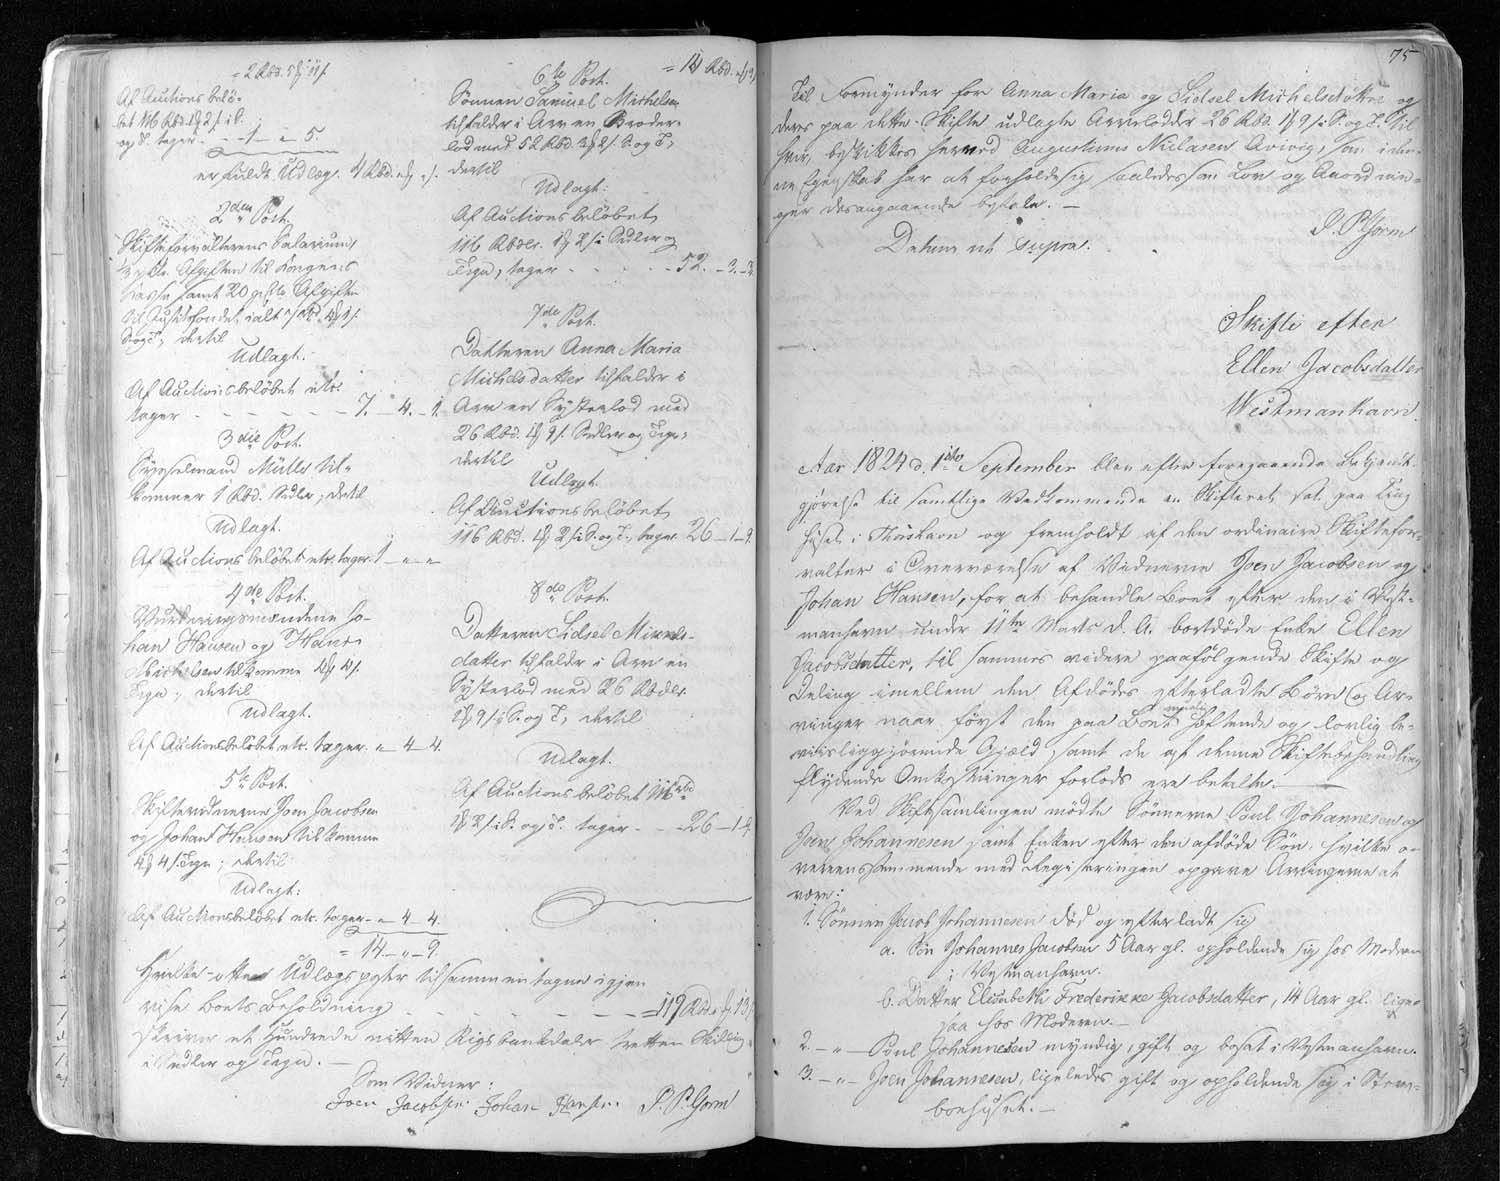 = 2 Rbd. 5 ₰ 11 s.
Af Auctions belø-
bet 116 Rbd. 1 ₰ 2 s. i S.
og T. tager - - 1 - " - 5.
er fuldt Udlæg.
2den Post.
Skifteforvalterens Salarium,
Afgiften til Kongens
Kasse samt 20 Afgift
til Justitsfondet, ialt 7 Rbd. 4 ₰ 1 s.
S. og T., dertil
Udlagt.
Af Auctionsbeløbet etc.
tager - - - - - - 7. - 4. - 1.
3die Post.
Sysselmand Müller til-
kommer 1 Rbd. Sedler; dertil
Udlagt.
Af Auctions beløbet etc. tager. 1 - " - "
4de Post.
Vurderingsmændene Jo-
han Hansen og Hans
Michelsen tilkomme 4 ₰ 4 s.
Tegn; dertil
Udlagt.
Af Auctionsbeløbet etc. tager. " - 4 - 4.
5te Post.
Skiftevidnerne Joen Jacobsen
og Johan Hansen tilkomme
4 ₰ 4 s. Tegn; dertil
Udlagt:
Af Auctionsbeløbet etc. tager - " - 4 - 4.
= 14. - " - 9.
Hvilke otte Udlægsposter tilsammentagne igjen
vise Boets Beholdning - - - - - = 119 Rbd. " ₰ 13 s.
skriver et Hundrede nitten Rigsbankdaler tretten Skilling
i Sedler og Tegn. -
Som Vidner:
Joen Jacobsen. Johan Hansen. P. P. Gorm
6te Post.
Sønnen Samuel Michelsen
tilfalder i Arv en Broder-
lod med 52 Rbd. 3 ₰ 2 s. S. og T.,
dertil
Udlagt:
Af Auctionsbeløbet,
116 Rbdlr. 1 ₰ 2 s. i Sedler og
Tegn, tager - - - - - 52. - 3. - 2.
7de Post.
Datteren Anna Maria
Michelsdatter tilfalder i
Arv en Systerlod med
26 Rbd. 1 ₰ 9 s. Sedler og Tegn,
dertil
Udlagt.
Af Auctionsbeløbet,
116 Rbd. 1 ₰ 2 s. i S. og T., tager 26 - 1 - 9.
8de Post.
Datteren Sidsel Michels-
datter tilfalder i Arv en
Systerlod med 26 Rbdlr.
1 ₰ 9 s. i S. og T., dertil
Udlagt.
Af Auctionsbeløbet 116 Rbd
1 ₰ 2 s. i S. og T. tager - - - 26 - 1 - 9.
75
Til Formynder for Anna Maria og Sidsel Michelsdøttre og
deres paa dette Skifte udlagte Arvelodder 26 Rbd. 1 ₰ 9 s. i S. og T. til
hver, beskikkes herved Augustinus Niclasen som i den-
ne Egenskab har at forholde sig saaledes som Lov og Anordnin-
ger desangaaende befale. -
P. P. Gorm
Datum ut supra.
Skifte efter
Ellen Jacobsdatter
Westmanhavn
Aar 1824 d. 1ste September blev efter foregaaende Bekjendt-
gjørelse til samtlige Vedkommende en Skifteret sat paa Ting
huset i Thorshavn og fremholdt af den ordinaire Skiftefor-
valter i Overværelse af Vidnerne Joen Jacobsen og
Johan Hansen, for at behandle Boet efter den i Vest-
manhavn under 11te Marts d. A. bortdøde Enke Ellen
Jacobsdatter, til sammes videre paafølgende Skifte og
Deling imellem den Afdødes efterladte Børn og Ar-
vinger naar først den paa Boet heftende og lovlig be-
viisliggjørende Gjæld, samt de af denne Skiftebehandling
flydende Omkostninger forlods ere betalte. -
Ved Skiftesamlingen mødte Sønnerne Poul Johannesen og
Joen Johannesen samt Enken efter den afdøde Søn, hvilke o-
vereensstemmende med Registeringen opgave Arvingerne at
være:
1. Sønnen Jacob Johannesen død og efterladt sig
a. Søn Johannes Jacobsen 5 Aar gl. opholdende sig hos Moderen
i Vestmanhavn.
b. Datter Elisabeth Frederikke Jacobsdatter, 14 Aar gl. lige-
saa hos Moderen. -
2. - " - Poul Johannesen myndig, gift og bosat i Vestmanhavn.
3. - " - Joen Johannesen, ligeledes gift og opholdende sig i Strøm-